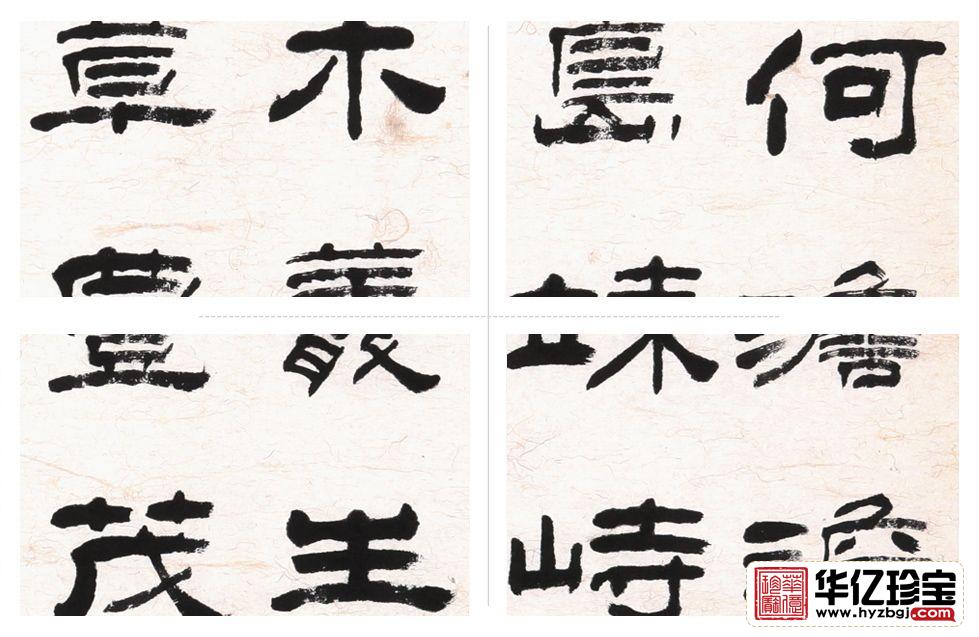 何澹澹
島竦峙
木叢生
草豐茂
華億珍寶
华亿珍宝
www.hyzbgj.com